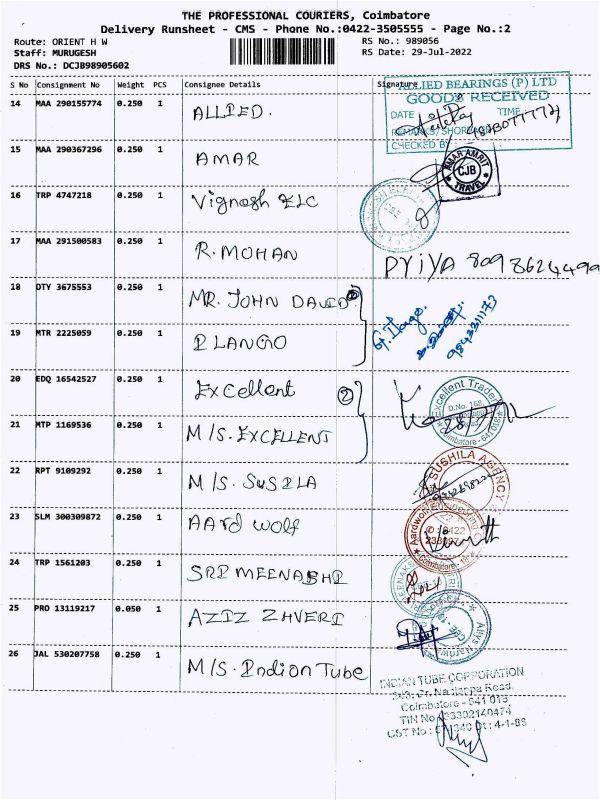 THE PROFESSIONAL COURIERS, Coimbatore
Delivery Runsheet - CMS - Phone No.:0422-3505555 - Page No.:2
Route: ORIENT H W
RS No.: 989056
Staff: MURUGESH
RS Date: 29-Jul-2022
DRS No.: DCJB98905602
S No Consignment No Weight PCS Consignee Details Signature
ALLIED BEARINGS (P) LTD
GOODS RECEIVED
14 MAA 290155774 0.250 1 ALLIED.
DATE TIME
CHECKED BY
15 MAA 290367296 0.250 1 AMAR
AMAR AMRIT
CJB
TRAVEL
16 TRP 4747218 0.250 1 Vignesh ELC
17 MAA 291500583 0.250 1 R. MOHAN
Priya 8098624499
18 DTY 3675553 0.250 1 MR. JOHN DAVID
19 MTR 2225059 0.250 1 ILANGO
20 EDQ 16542527 0.250 1 Excellent ②
Excellent Traders
D.No. 168
Coimbatore - 641 018
21 MTP 1169536 0.250 1 M/S. EXCELLENT
22 RPT 9109292 0.250 1 M/S. SUSILA
SUSHILA AGENCY
23 SLM 300309872 0.250 1 AARD WOLF
Aardwolf Engineering
Coimbatore - 18
24 TRP 1561203 0.250 1 SRI MEENAKSHI
25 PRO 13119217 0.050 1 AZIZ ZHVERI
26 JAL 530207758 0.250 1 M/S. Indian Tube
INDIAN TUBE CORPORATION
Coimbatore - 641 018
TIN No
CST No
Dt : 4-1-88